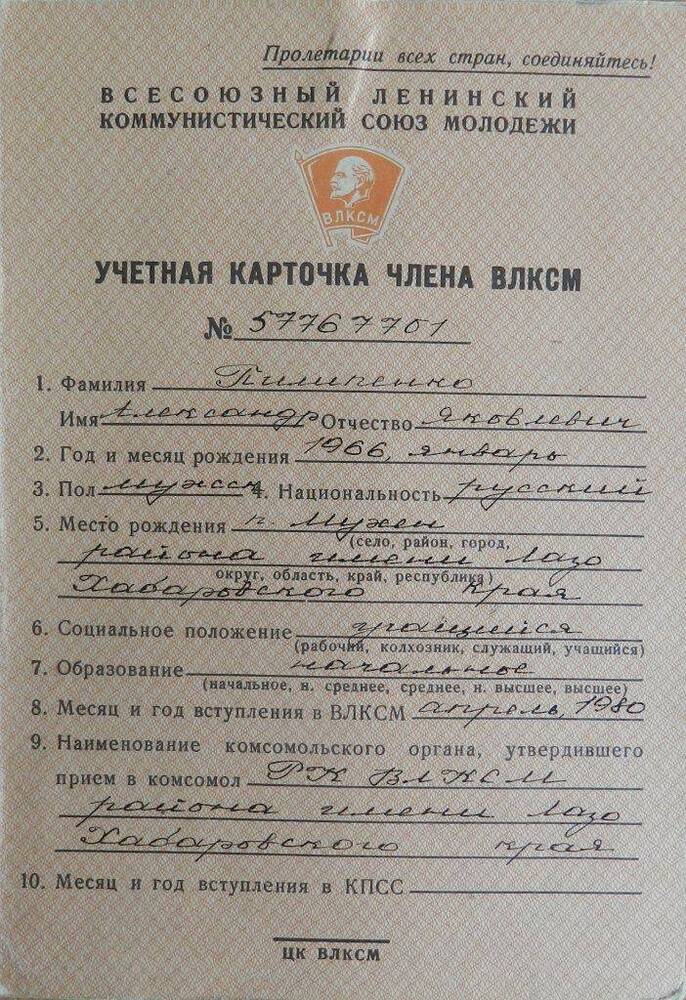 Пролетарии всех стран, соединяйтесь!
ВСЕСОЮЗНЫЙ ЛЕНИНСКИЙ
КОММУНИСТИЧЕСКИЙ СОЮЗ МОЛОДЕЖИ
ВЛКСМ
УЧЕТНАЯ КАРТОЧКА ЧЛЕНА ВЛКСМ
№ 57767701
1. Фамилия Пилипенко
Имя Александр Отчество Яковлевич
2. Год и месяц рождения 1966, январь
3. Пол мужск 4. Национальность русский
5. Место рождения п. Мухен
(село, район, город,
района имени Лазо
округ, область, край, республика)
Хабаровского края
6. Социальное положение учащийся
(рабочий, колхозник, служащий, учащийся)
7. Образование начальное
(начальное, н. среднее, среднее, н. высшее, высшее)
8. Месяц и год вступления в ВЛКСМ апрель, 1980
9. Наименование комсомольского органа, утвердившего
прием в комсомол РК ВЛКСМ
района имени Лазо
Хабаровского края
10. Месяц и год вступления в КПСС
ЦК ВЛКСМ